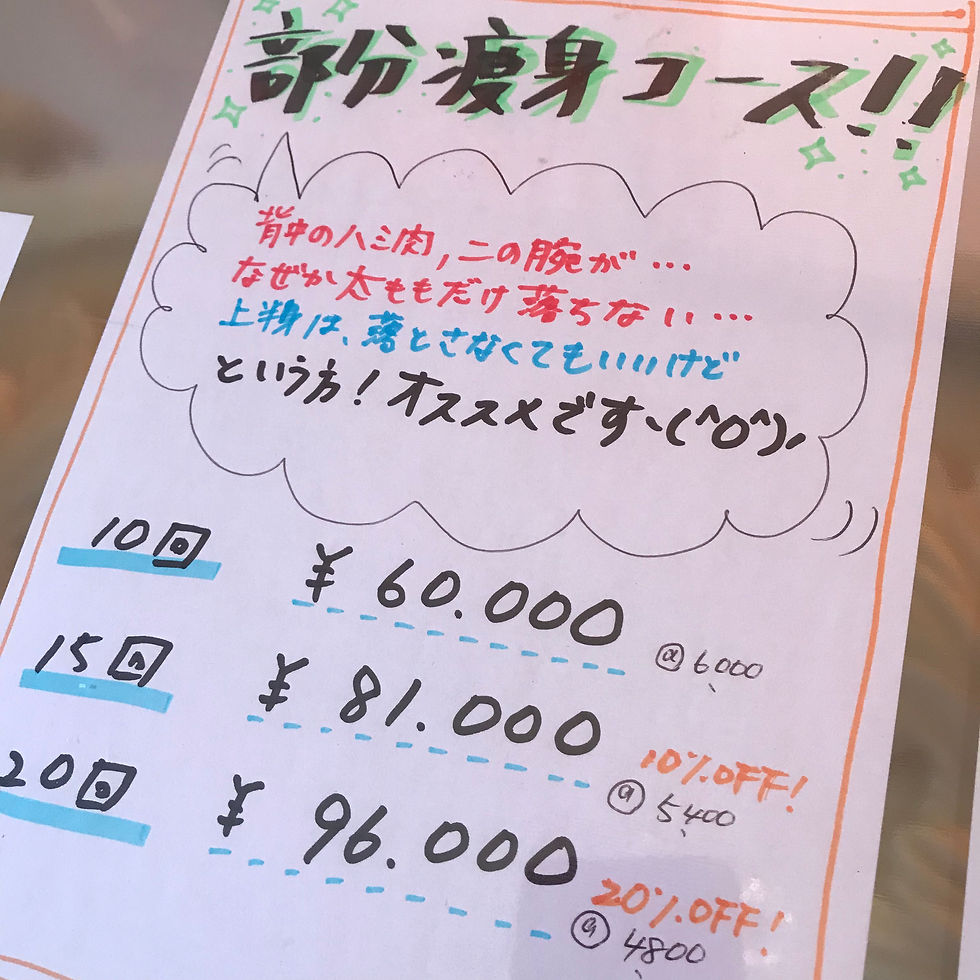 部分痩身コース!!
背中のハミ肉,二の腕が…
なぜか太ももだけ落ちない…
上半身は、落とさなくてもいいけど
という方！オススメですヽ(^o^)ノ
10回 ¥60.000
@6,000
15回 ¥81.000
10%OFF!
@5,400
20回 ¥96.000
20%OFF!
@4,800